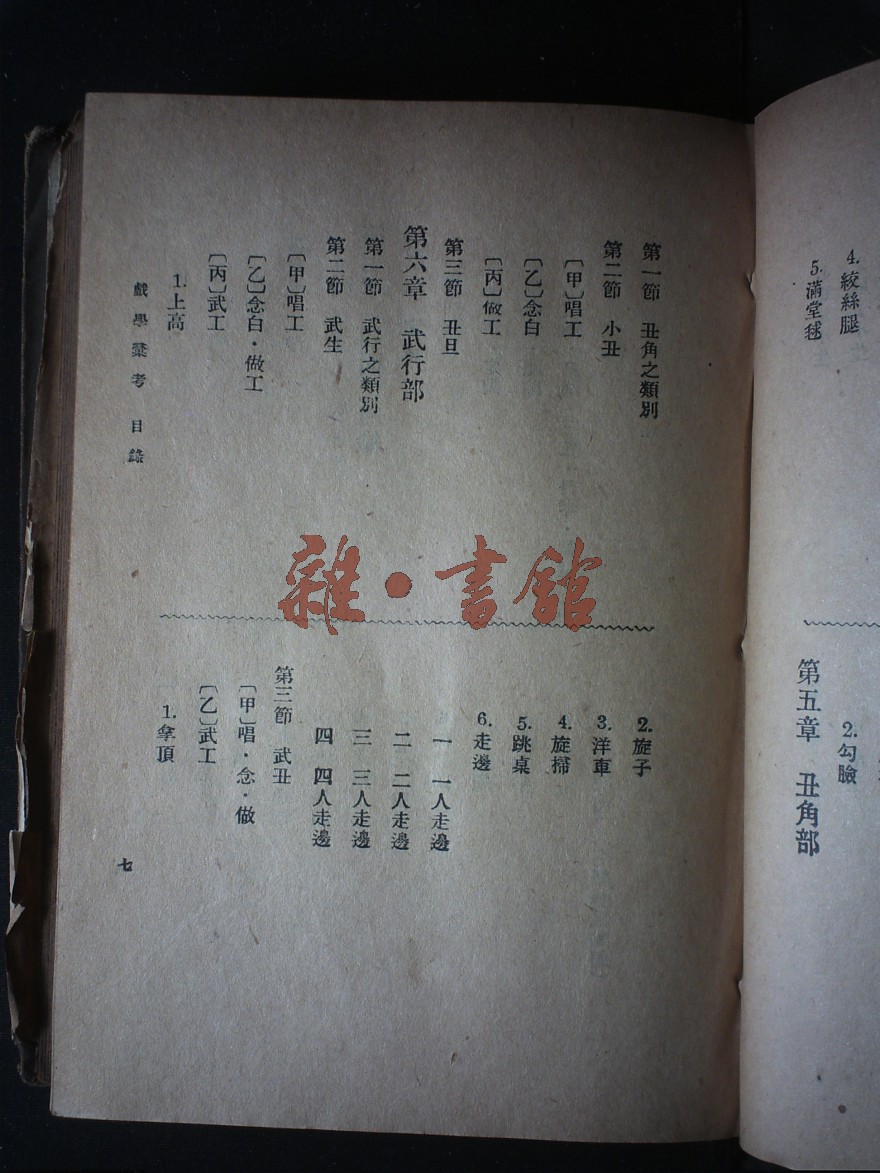 4. 絞絲腿
5. 滿堂毬
2. 勾臉
第五章 丑角部
第一節 丑角之類別
第二節 小丑
〔甲〕唱工
〔乙〕念白
〔丙〕做工
第三節 丑旦
第六章 武行部
第一節 武行之類別
第二節 武生
〔甲〕唱工
〔乙〕念白·做工
〔丙〕武工
1. 上高
2. 旋子
3. 洋車
4. 旋掃
5. 跳桌
6. 走邊
一 一人走邊
二 二人走邊
三 三人走邊
四 四人走邊
第三節 武丑
〔甲〕唱·念·做
〔乙〕武工
1. 拿頂
戲學彙考 目錄
七
雜·書館